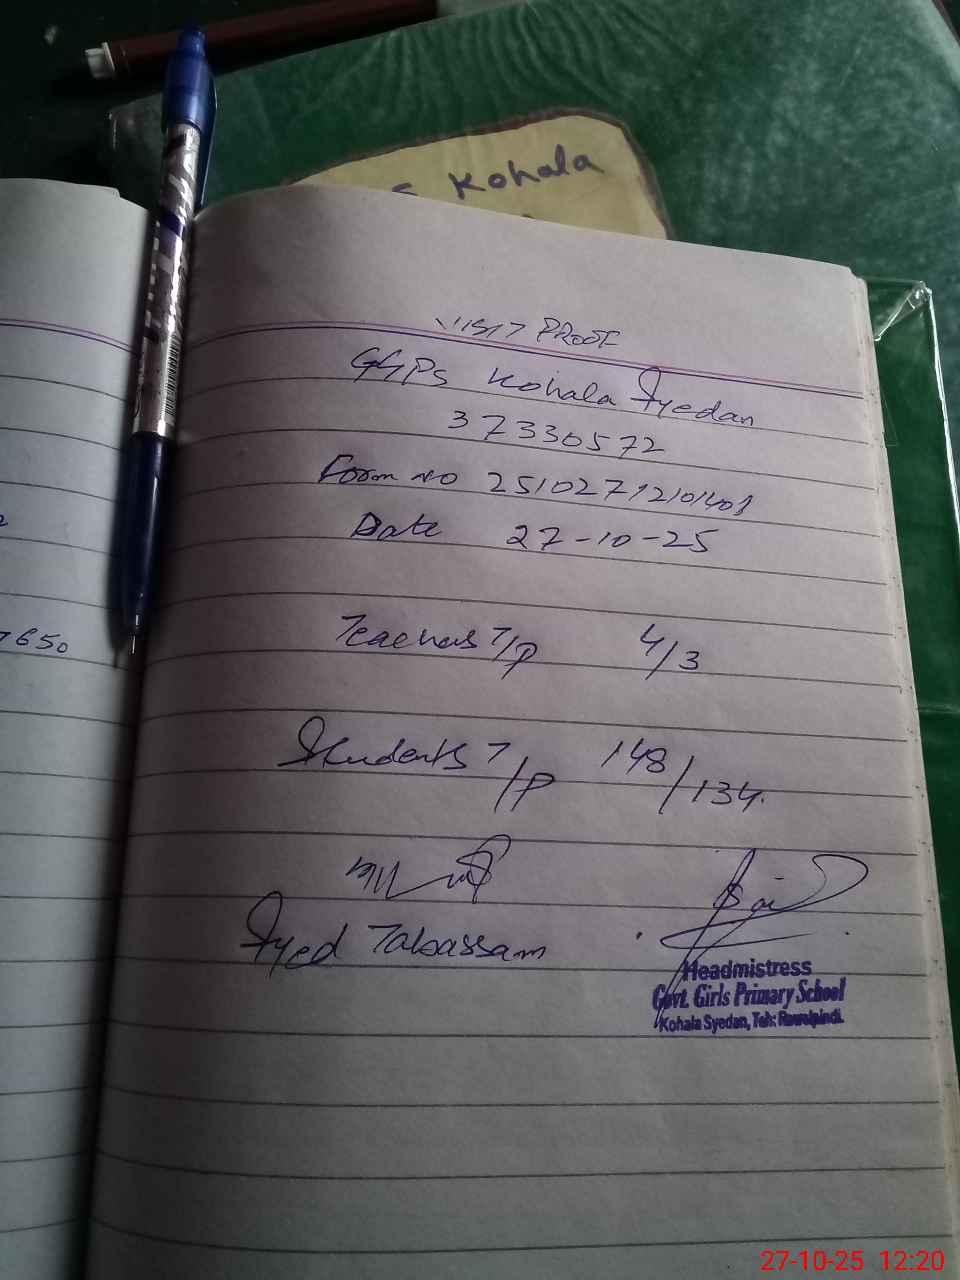 Kohala
VISIT PROOF
GGPS Kohala Syedan
37330572
Form no 25102712101401
Date 27-10-25
7650
Teachers T/P 4/3
Students T/P 148/134.
Syed Tabassam
Headmistress
Govt. Girls Primary School
Kohala Syedan, Teh: Rawalpindi.
27-10-25 12:20